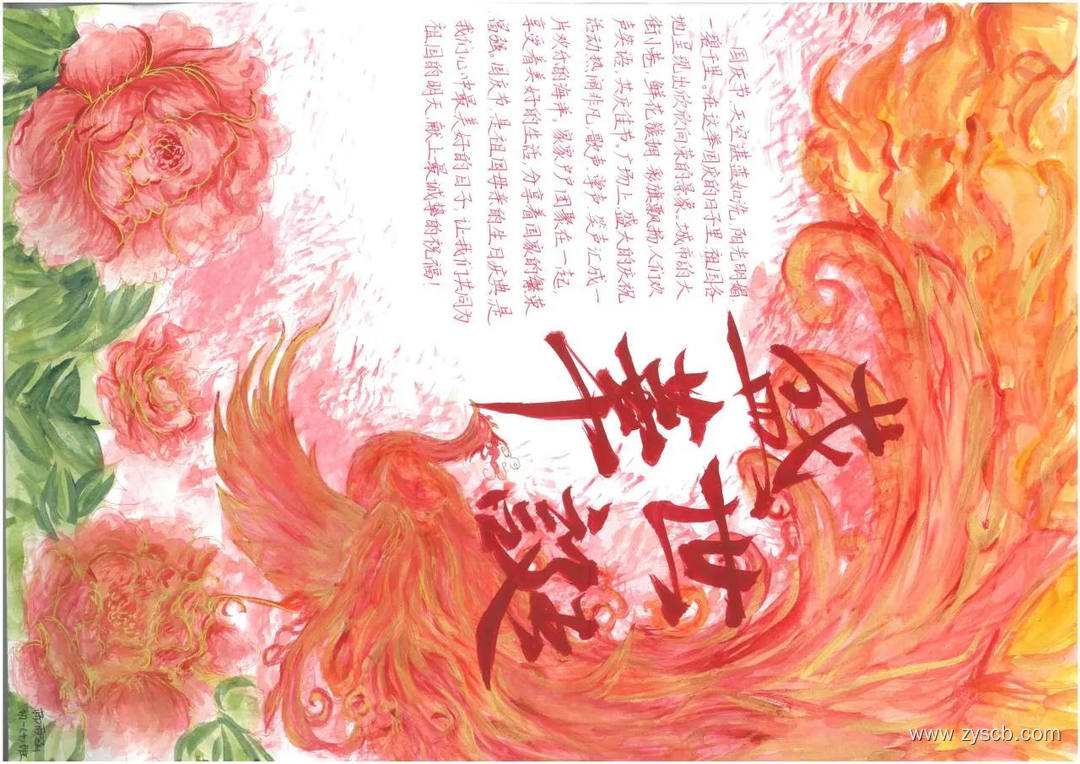 国庆节,天空湛蓝如洗,阳光明媚
一碧千里。在这举国庆的日子里,祖国各
地呈现出欣欣向荣的景象,城市的大
街小巷,鲜花簇拥,彩旗飘扬,人们欢
声笑语,共庆佳节。广场上,盛大的庆祝
活动热闹非凡,歌声、掌声、笑声汇成一
片欢乐的海洋。家家户户团聚在一起
享受着美好的生活,分享着国家的繁荣
昌强。国庆节,是祖国母亲的生日庆典,是
我们心中最美好的日子,让我们共同为
祖国的明天,献上最诚挚的祝福!
盛世
華誕
www.zyscb.com